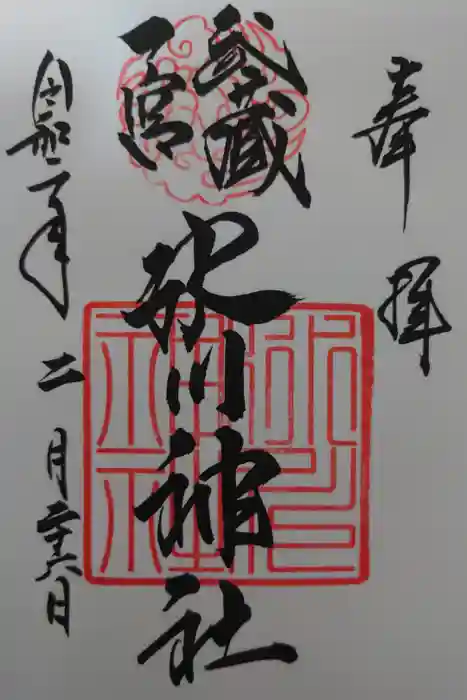 奉拝
武蔵
一宮
氷川神社
令和二年二月二十六日
氷川
神社